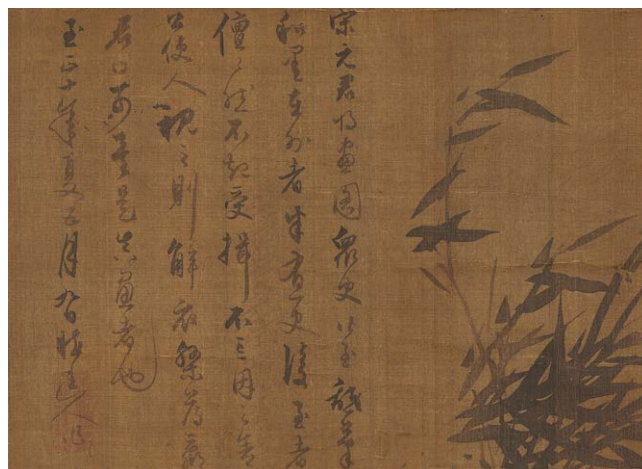 宋元君將畫圖眾史皆至舐筆
和墨在外者半有史後至者
儃々然不趨受揖不立因之舍
公使人視之則解衣槃薄臝
君曰可矣是真畫者也
至正十年夏五月 人作